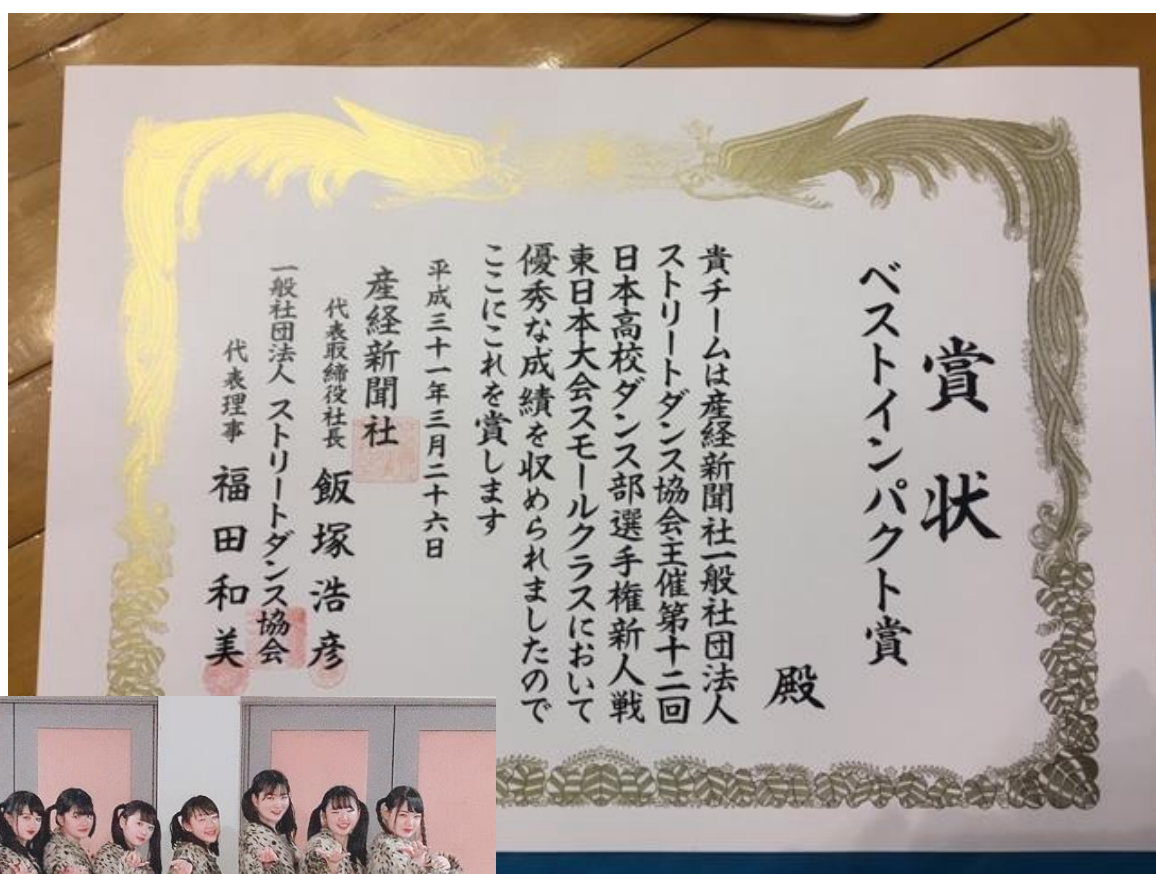 賞状
ベストインパクト賞
殿
貴チームは産経新聞社一般社団法人
ストリートダンス協会主催第十二回
日本高校ダンス部選手権新人戦
東日本大会スモールクラスにおいて
優秀な成績を収められましたので
ここにこれを賞します
平成三十一年三月二十六日
産経新聞社
代表取締役社長 飯塚浩彦
一般社団法人 ストリートダンス協会
代表理事 福田和美